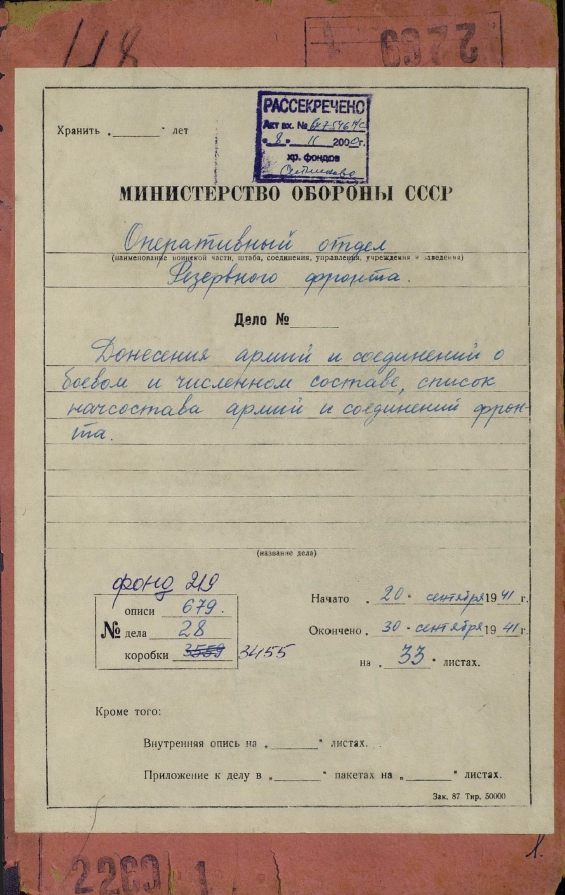 118
2269
РАССЕКРЕЧЕНО
Акт вх. №
"8" 11 2000г.
хр. фондов
Хранить " " лет
МИНИСТЕРСТВО ОБОРОНЫ СССР
Оперативный отдел
(наименование воинской части, штаба, соединения, управления, учреждения и заведения)
Резервного фронта.
Дело №
Донесения армий и соединений о
боевом и численном составе, список
начсостава армий и соединений фрон-
та.
(название дела)
фонд 219
описи 679.
№ дела 28
коробки 3559 3455
Начато "20" сентября 1941 г.
Окончено "30" сентября 1941 г.
на "33" листах.
Кроме того:
Внутренняя опись на " " листах.
Приложение к делу в " " пакетах на " " листах.
Зак. 87 Тир. 50000
1.
2269 1